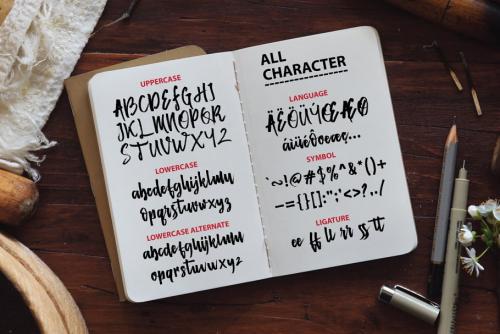 UPPERCASE
ABCDEFGHI
JKLMNOPQR
STUVWXYZ
LOWERCASE
abcdefghijklmnu
opqrstuvwxyz
LOWERCASE ALTERNATE
abcdefghijklmnu
opqrstuvwxyz
ALL
CHARACTER
LANGUAGE
SYMBOL
`~!@#$%^&*()+
-={}[]:";'<>?,./
LIGATURE
ee ff ll rr ss tt